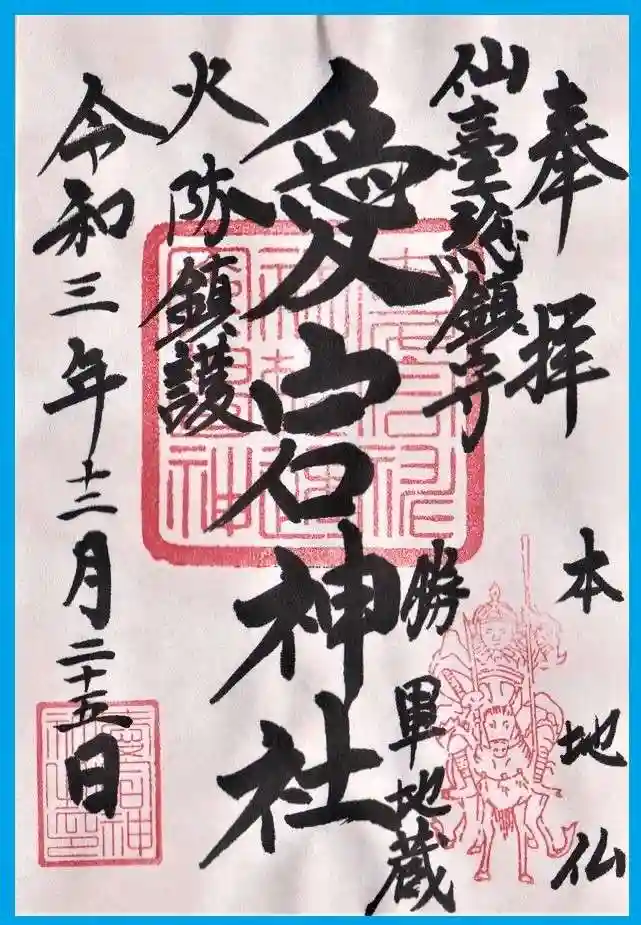 奉拝
本地仏
仙臺総鎮守
勝軍地蔵
愛宕神社
火防鎮護
令和三年十二月二十五日
愛宕神
社之印